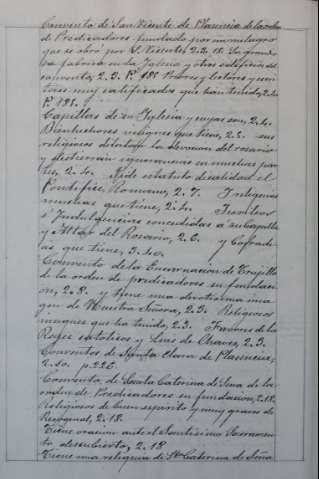 Convento de San Vicente de Plasencia de la orden
de Predicadores fundado por un milagro
que se obró por S. Vicente, 2.2. 18. Su grande
fabrica en la Iglesia y otros edificios del
convento, 2. 3. Pº 188 Priores y lectores y
tores muy calificados que han tenido,
Pº 191.
Capillas de su Iglesia y cuyas son, 2, 4.
Bienhechores insignes que tiene, 2. 2. sus
religiosos dilatan la devocion del rosario
y destierran ignorancias en muchas par
tes, 2. 4. Pide estatuto de calidad el
Pontifice, Romano, 2. 7. Indigenias
muchas que tiene, 2. 4.
é Indulgencias concedidas á su Capilla
y Altar del Rosario, 2. 6. y Cofradi
as que tiene, 3. 40.
Convento de la Encarnacion de Trujillo
de la orden de predicadores su fundaci
on, 2. 8. y tiene una devotisima ima
gen de Nuestra Señora, 2. 3. Religiosos
insignes que ha tenido, 2. 3. Favores de los
Reyes catolicos y Luis de Chaves, 2. 3.
Conventos de Santa Clara de Plasencia,
2. 40. p. 226.
Convento, de Santa Caterina de Sena de la
orden de Predicadores su fundacion, 2. 18.
Religiosas de buen espiritu y muy graves de
Recogensal, 2. 18.
Tiene oracion ante el Santisimo Sacramen
to descubierto, 2. 18
Tiene una reliquia de Stª Caterina de Sena